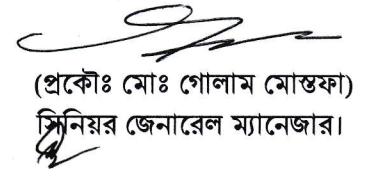 (প্রকৌঃ মোঃ গোলাম মোস্তফা)
সিনিয়র জেনারেল ম্যানেজার।